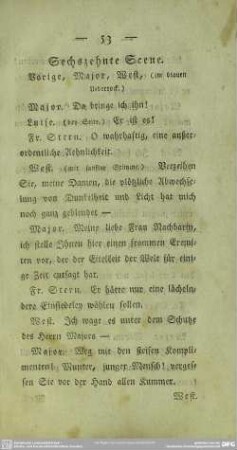 — 53 —
Sechszehnte Scene.
Vorige, Major, West, (im blauen
Ueberrock.)
Major. Da bringe ich ihn!
Luise. (bey Seite.) Er ist es!
Fr. Stern. O wahrhaftig, eine außer-
ordentliche Aehnlichkeit.
West. (mit sanfter Stimme.) Verzeihen
Sie, meine Damen, die plötzliche Abwechse-
lung von Dunkelheit und Licht hat mich
noch ganz geblendet —
Major. Meine liebe Frau Nachbarin,
ich stelle Ihnen hier einen frommen Eremi-
ten vor, der der Eitelkeit der Welt für ei-
nige Zeit entsagt hat.
Fr. Stern. Er hätte nur eine lächeln-
dere Einsiedeley wählen sollen.
West. Ich wage es unter dem Schutze
des Herrn Majors —
Major. Weg mit den steifen Kompli-
menten! Munter, junger Mensch! verges-
sen Sie vor der Hand allen Kummer.
West.